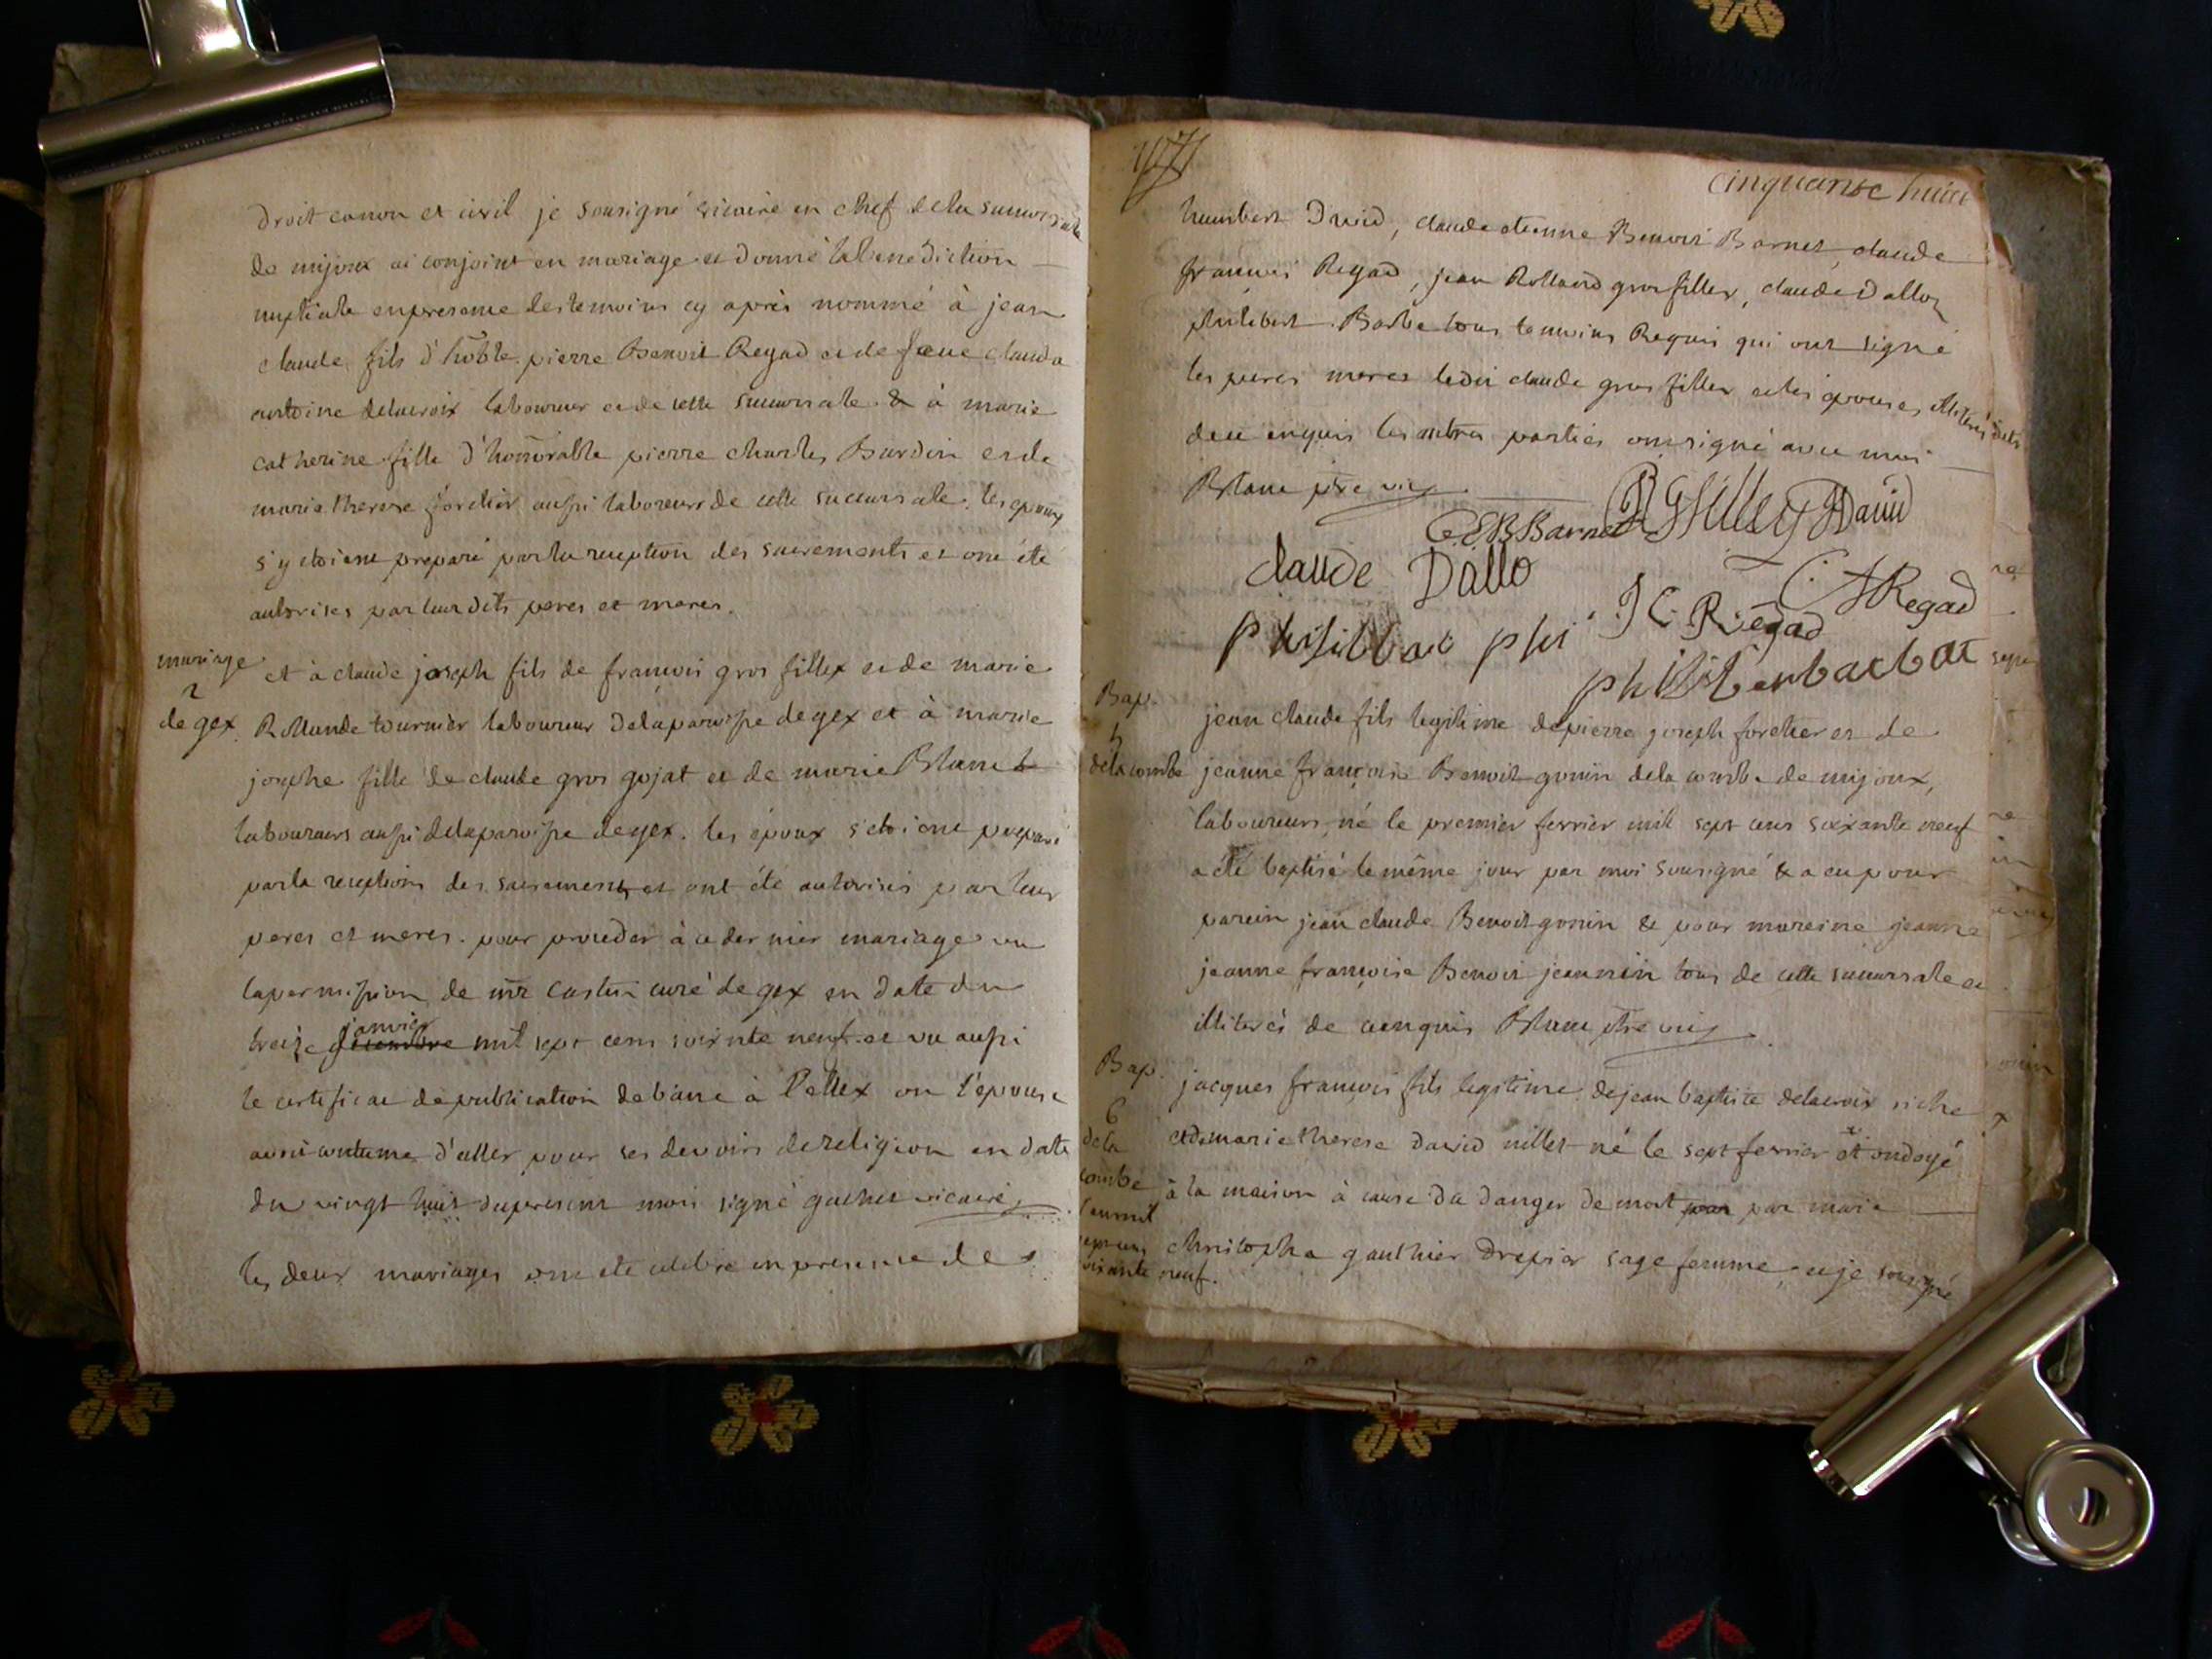 droit canon et civil je sousigné vicaire en chef de la succursale
de mijoux ai conjoint en mariage et donné la benediction
nuptiale en presence des temoins cy après nommé à jean
claude fils d'hoble pierre Benoit Regad et de feue clauda
antoine delacroix laboureur et de cette succursale & à marie
catherine fille d'honnorable pierre charles Burdin et de
marie therese foretier aussi laboreurs de cette succursale. les epoux
s'y etoient preparé par la reception des sacrements et ont été
autorises par leur dits peres et meres.
mariage
2
de gex
et à claude joseph fils de francois gros fillex et de marie
Rollande tournier laboureur de la paroisse de gex et à marie
josephe fille de claude gros gojat et de marie Blanc
laboureurs aussi de la paroisse de gex. les époux s'etoient preparé
par la reception des sacrements et ont été autorisés par leur
peres et meres. pour proceder à ce dernier mariage vu
la permission de mr castin curé de gex en date du
treize janvier mil sept cens soixnte neuf et vu aussi
le certificat de publication de bans à lellex ou l'epouse
avoit coutume d'aller pour ses devoirs de religion en date
du vingt huit du present mois signé guchet vicaire
les deux mariages ont ete celebre en presence de
cinquante huit
humbert David, claude etienne Benoit Barnet, claude
francois Regad, jean Rolland gros fillex, claude Dalloz
philibert Barbe tous temoins Requis qui ont signé
les peres meres ledit claude gros fillex et les epouses illiterés dets
de ce enquis les autres parties ont signé avec moi
Blanc ptre vic
C.E.B Barnet R G fillex H David
claude Dallo
J C Regad C f Regad
Bap.
5
de la combe
jean claude fils legitime de pierre joseph foretier et de
jeanne françoise Benoit gonin de la combe de mijoux,
laboureurs, né le premier fevrier mil sept cens soixante neuf
a été baptisé le même jour par moi sousigné & a eu pour
parein jean claude Benoit gonin & pour mareine jeanne
jeanne françoise Benoit jeannin tous de cette succursale et
illiterés de ce enquis Blanc ptre vic
Bap.
6
de la
combe
jacques francois fils legitime de jean baptiste delacroix riche
et de marie therese david nillet né le sept fevrier et ondoyé
à la maison à cause du danger de mort par marie
christophe gauthier drapier sage femme, et je sousigné
soixante neuf.